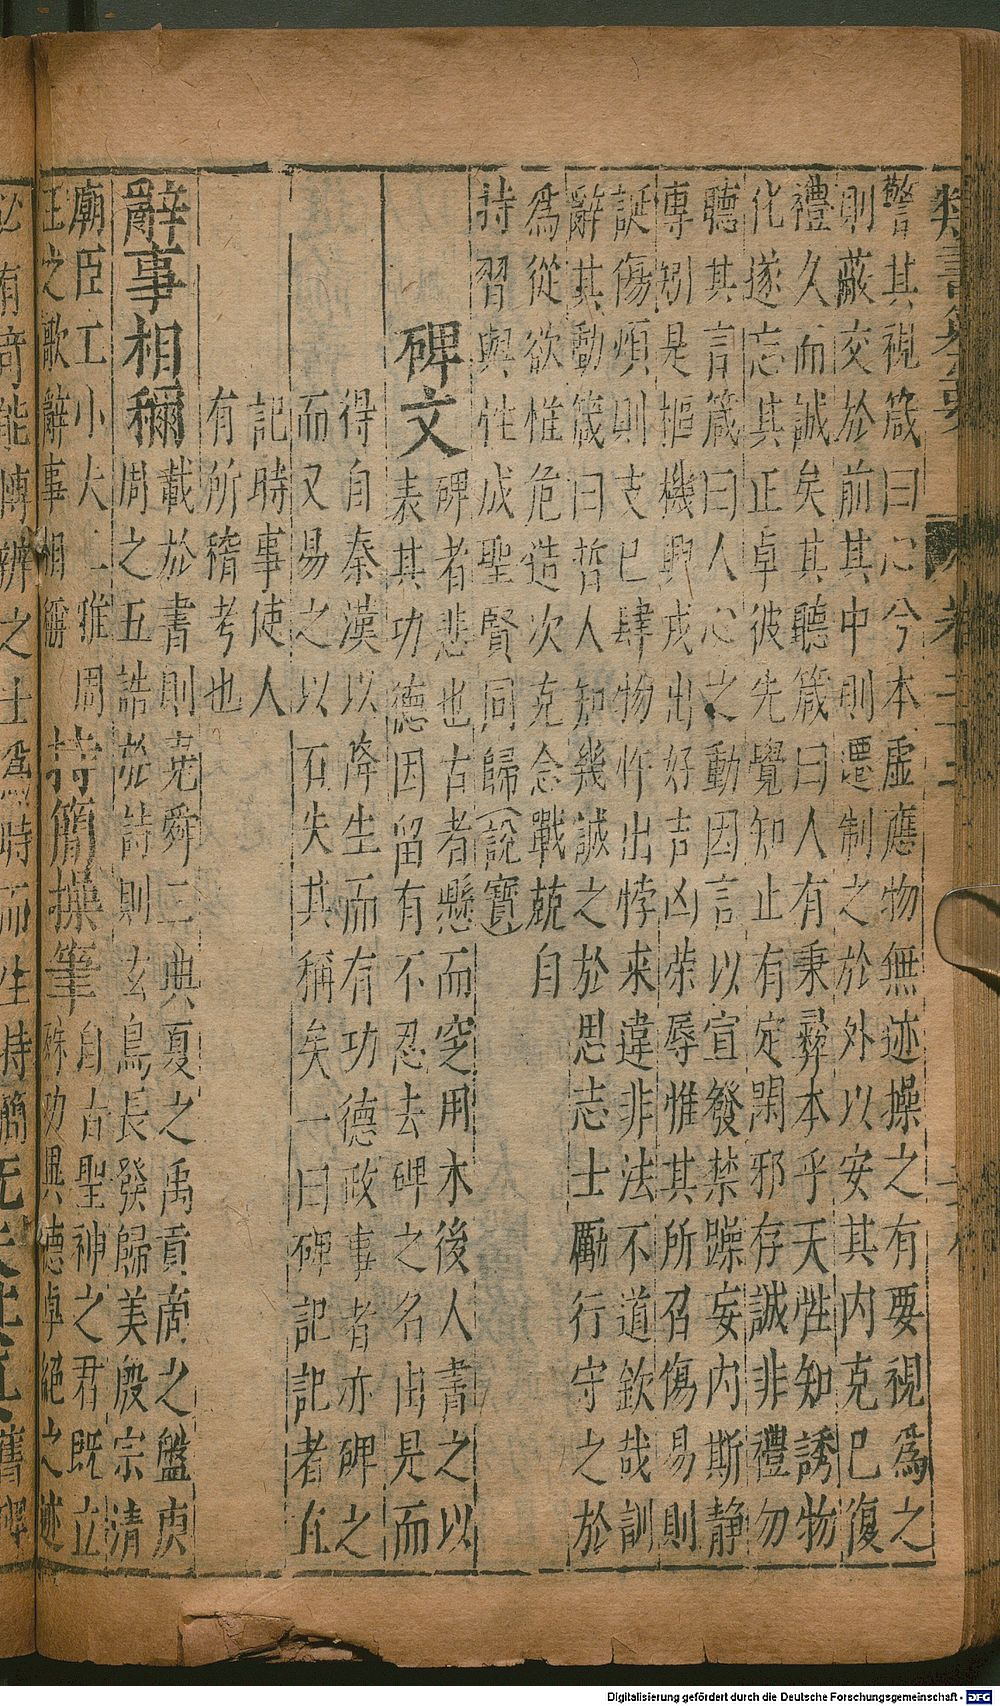 警其視箴曰心兮本虛應物無迹操之有要視爲之
則蔽交於前其中則遷制之於外以安其内克已復
禮久而誠矣其聽箴曰人有秉彝本乎天性知誘物
化遂忘其正卓彼先覺知止有定閑邪存誠非禮勿
聽其言箴曰人心之動因言以宣發禁躁妄内斯静
專矧是樞機興戎出好吉凶荣辱惟其所召傷易則
誕傷煩則支已肆物忤出悖来違非法不道欽哉訓
辭其動箴曰哲人知幾誠之於思志士勵行守之於
爲從欲惟危造次克念戰兢自
持習與性成聖賢同歸(說寶)
碑文
碑者悲也古者懸而窆用木後人書之以
表其功德因留有不忍去碑之名由是而
得自秦漢以降生而有功德政事者亦碑之
而又易之以石失其稱矣一曰碑記記者在
記時事使人
有所稽考也
辭事相稱
載於書則堯舜二典夏之禹貢商之盤庚
周之五誥於詩則玄鳥長發歸美殷宗清
廟臣工小大二雅周
王之歌辭事相稱
持簡操筆
自古聖神之君既立
殊功異德卓絕之迹
必有竒能博辨之士爲時而生持簡
舊碑
類書纂要
卷二十三
Digitalisierung gefördert durch die Deutsche Forschungsgemeinschaft - DFG